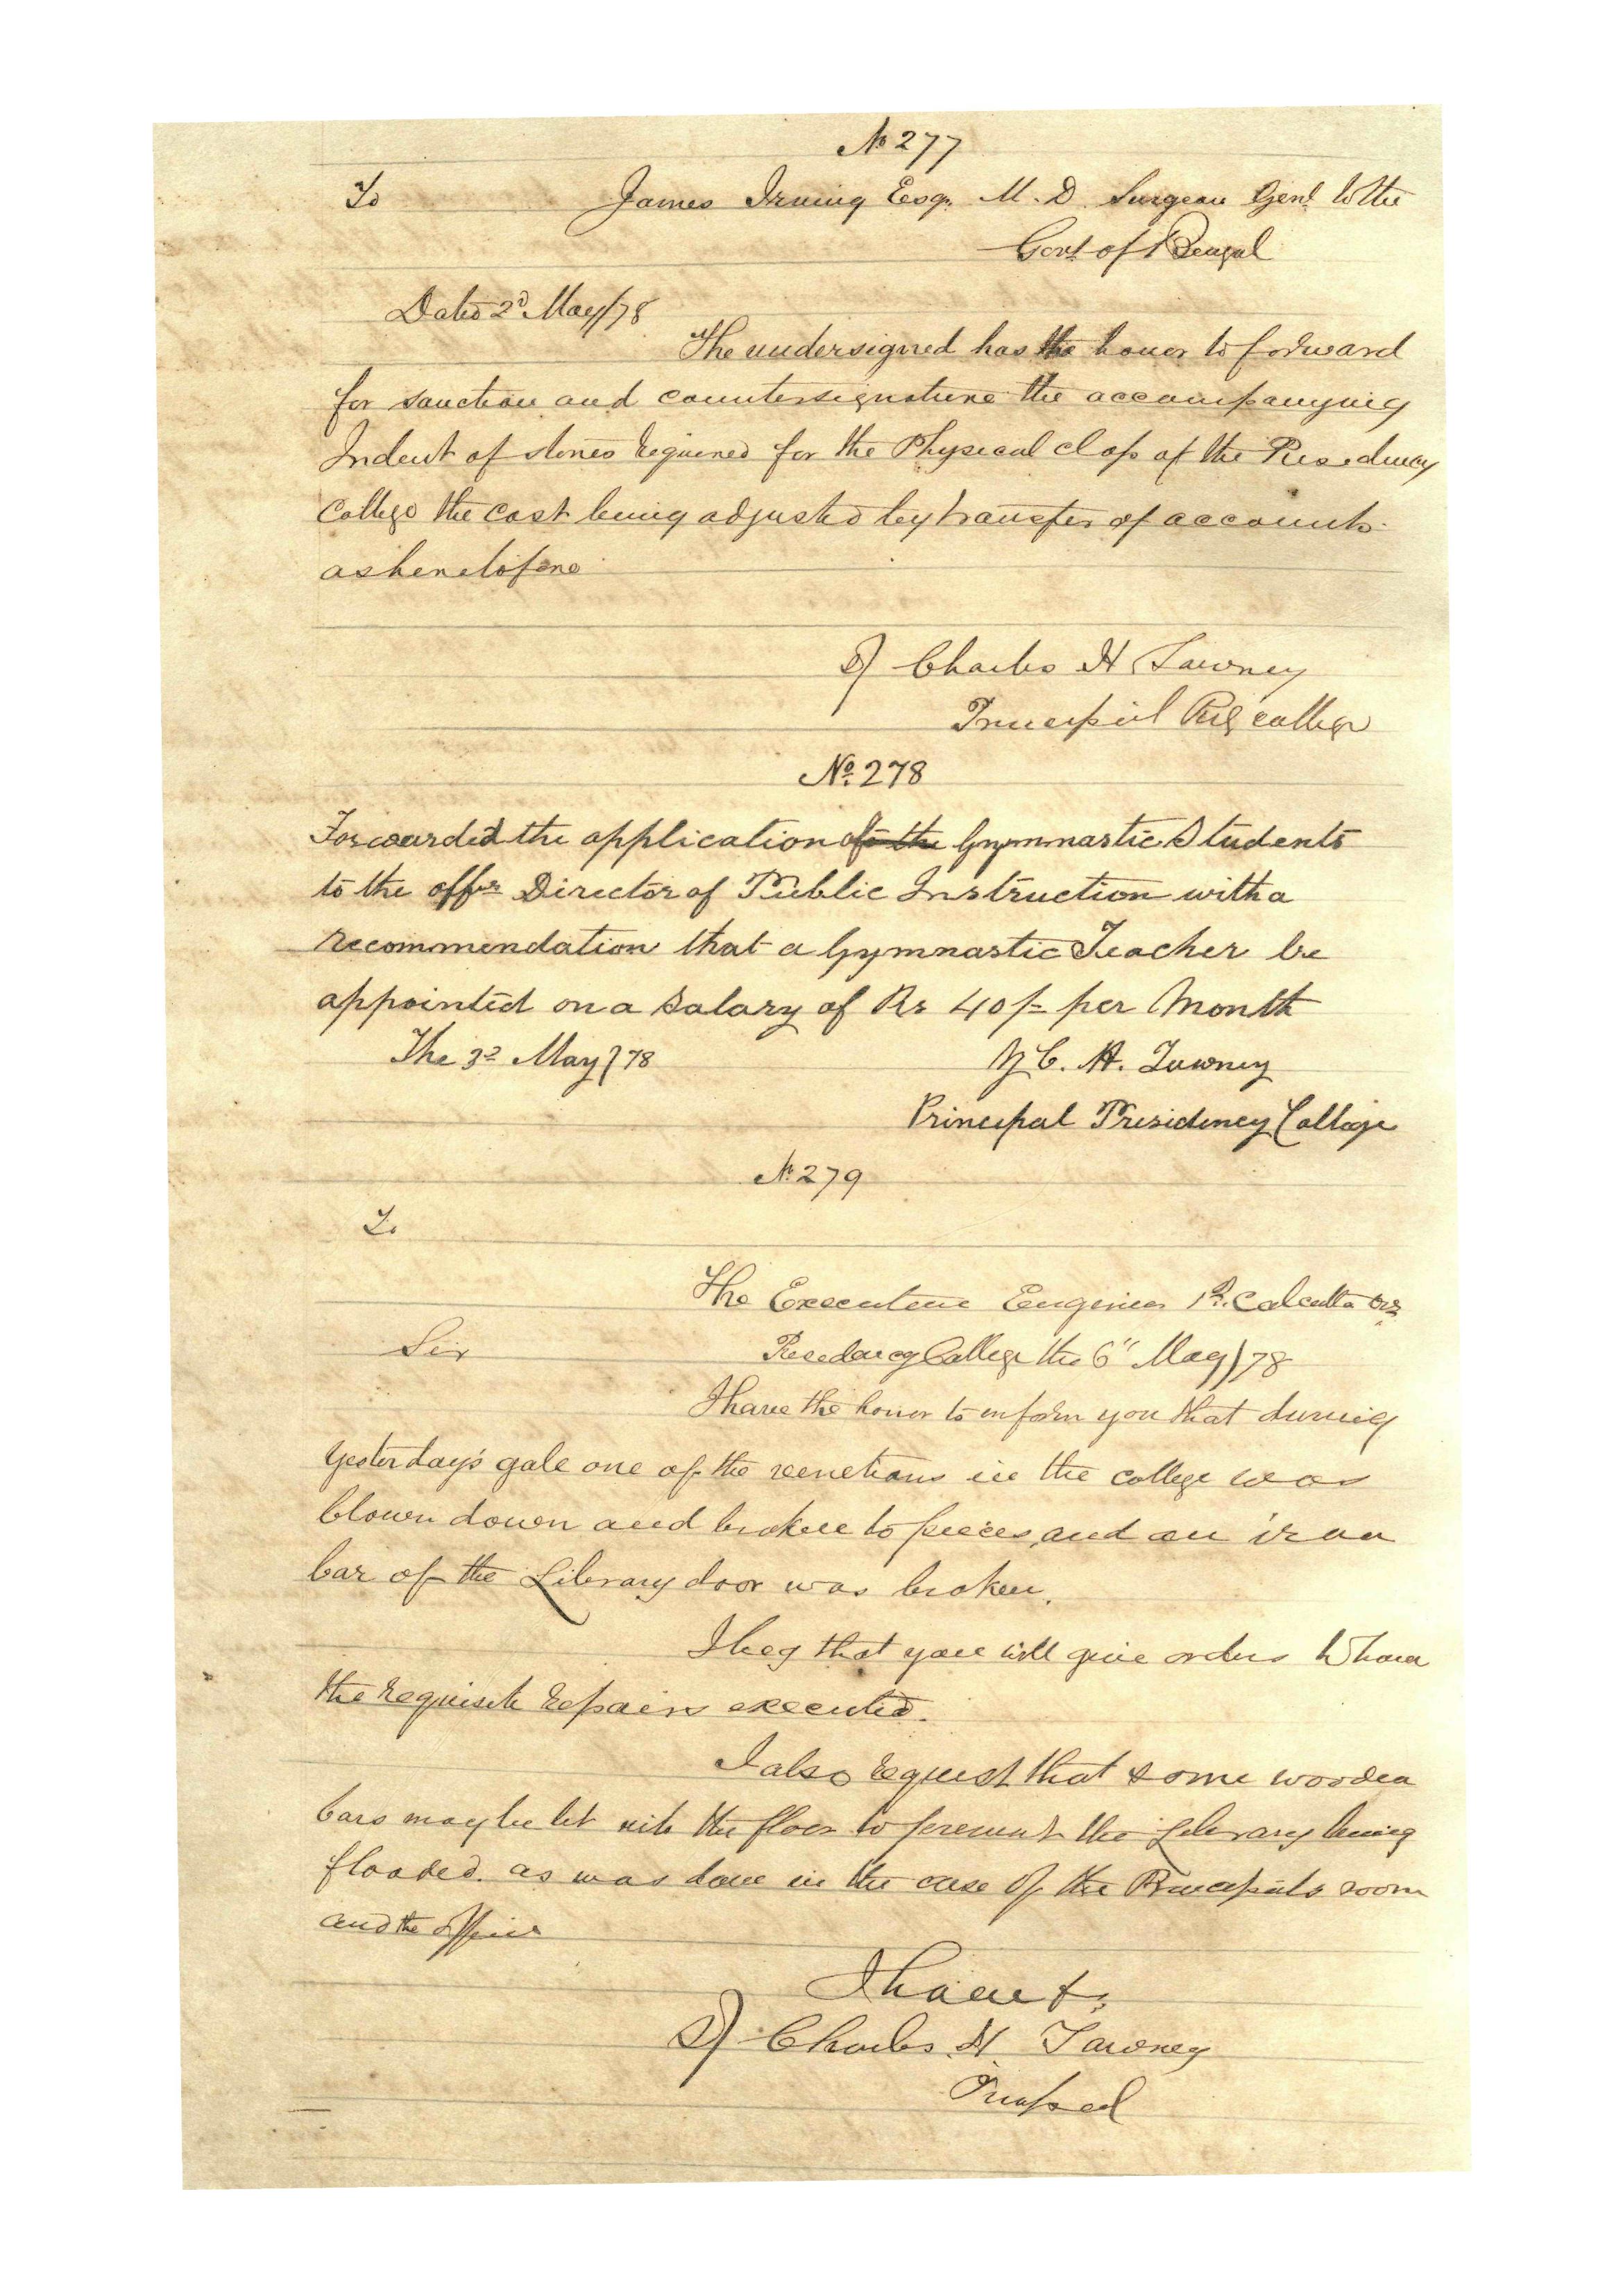 No 277
To James Irving Esqr. M.D. Surgeon Genl. to the
Govt of Bengal
Dated 2d May/78
The undersigned has the honor to forward
for sanction and countersignature the accompanying
Indent of stores required for the Physical class of the Presidency
College the cost being adjusted by transfer of accounts
as heretofore
Sd/ Charles H Tawney
Principal Presy college
No. 278
Forwarded the application of the Gymnastic Students
to the offg Director of Public Instruction with a
recommendation that a Gymnastic Teacher be
appointed on a Salary of Rs 40/- per Month
The 3d May/78
Sd/ C. H. Tawney
Principal Presidency College
No. 279
To
The Executive Engineer 1st Calcutta
Sir Presidency College the 6th May/78
I have the honor to inform you that during
yesterday's gale one of the venetians in the college was
blown down and broken to pieces, and an iron
bar of the Library door was broken.
I beg that you will give orders to have
the requisite repairs executed.
I also request that some wooden
bars may be let into the floor to prevent the Library being
flooded. as was done in the case of the Principals room
and the office
I have &c
Sd/ Charles H. Tawney
Principal